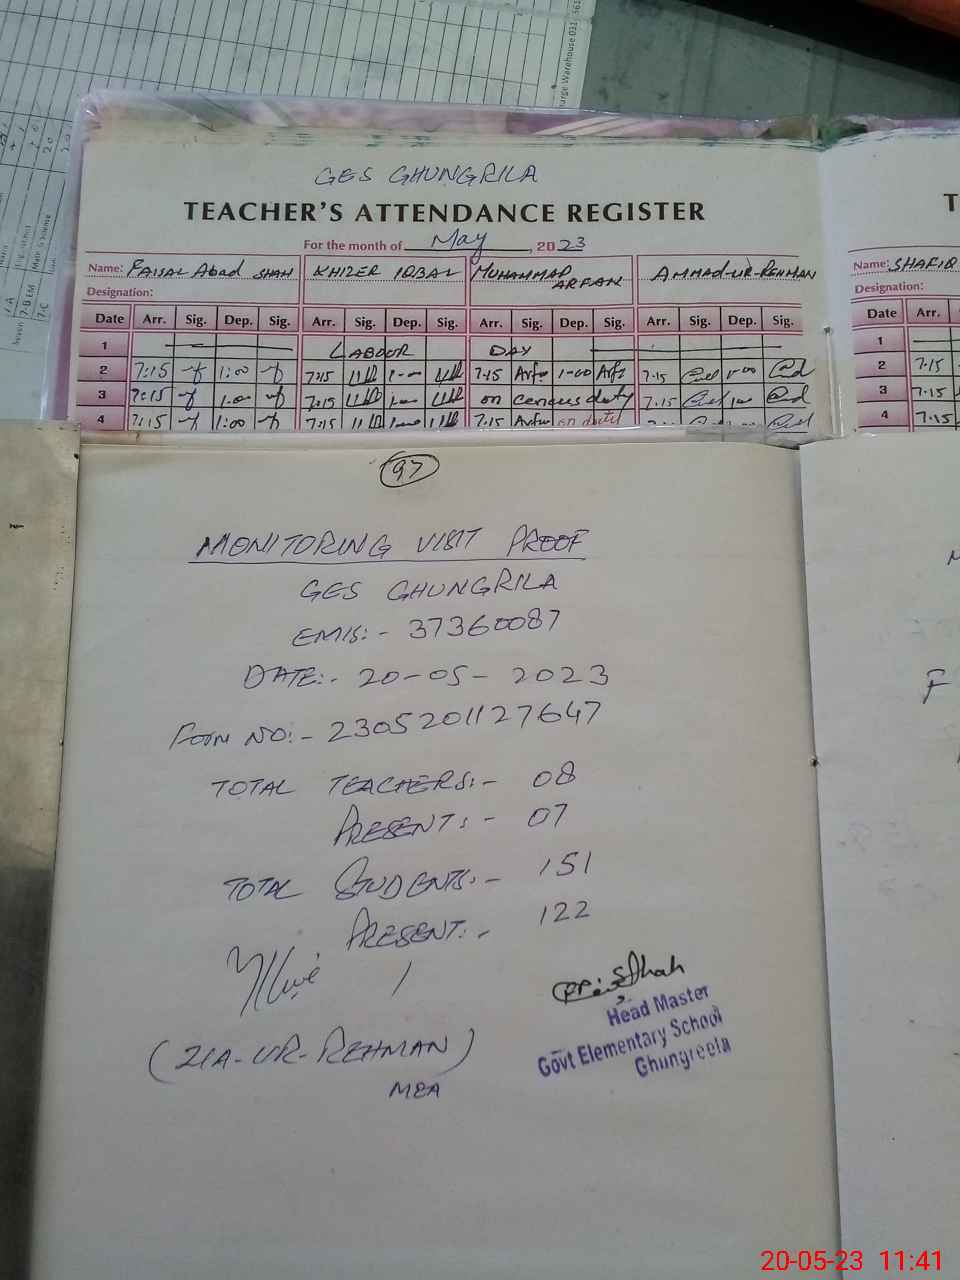 GES GHUNGRILA
TEACHER'S ATTENDANCE REGISTER
For the month of May, 2023
Name: FAISAL Abad SHAH KHIZER IQBAL MUHAMMAD ARFAN AMMAD-UR-REHMAN
Designation:
Date Arr. Sig. Dep. Sig. Arr. Sig. Dep. Sig. Arr. Sig. Dep. Sig. Arr. Sig. Dep. Sig.
1 LABOUR DAY
2 7:15 1:00 7:15 1-00 7-15 1-00 7-15 1-00
3 7:15 1:00 7:15 1-00 on census duty 7.15 1-00
4 7:15 1:00 7:15 1-00 7.15 on duty 7.15 1-00
Name: SHAFIQ
Designation:
Date Arr.
1
2 7:15
3 7:15
4 7:15
97
MONITORING VISIT PROOF
GES GHUNGRILA
EMIS:- 37360087
DATE:- 20-05-2023
FORM NO:- 230520112 7647
TOTAL TEACHERS:- 08
PRESENT:- 07
TOTAL STUDENTS:- 151
PRESENT:- 122
(ZIA-UR-REHMAN)
MEA
Head Master
Govt Elementary School
Ghungreela
20-05-23 11:41